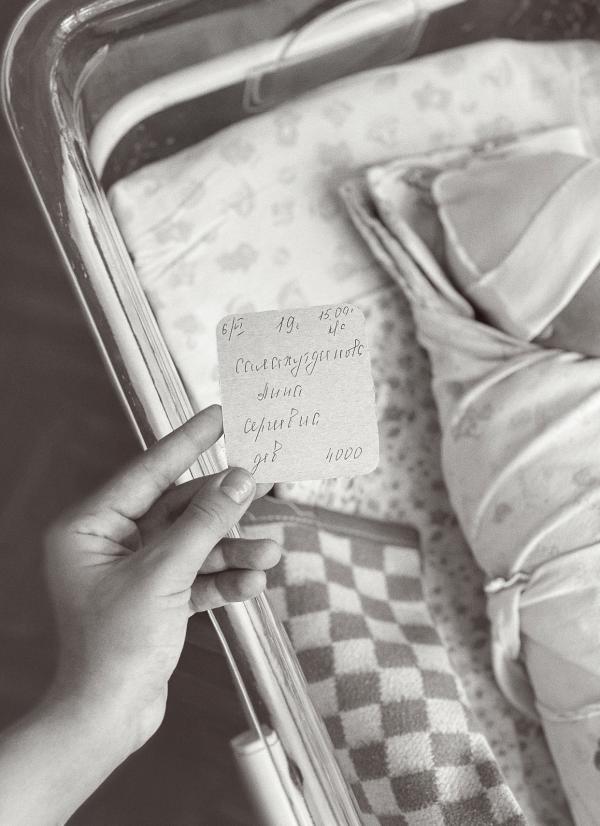 6/VI 19г 15.09г
ч/с
Салахутдинова
Анна
Сергеевна
дев 4000